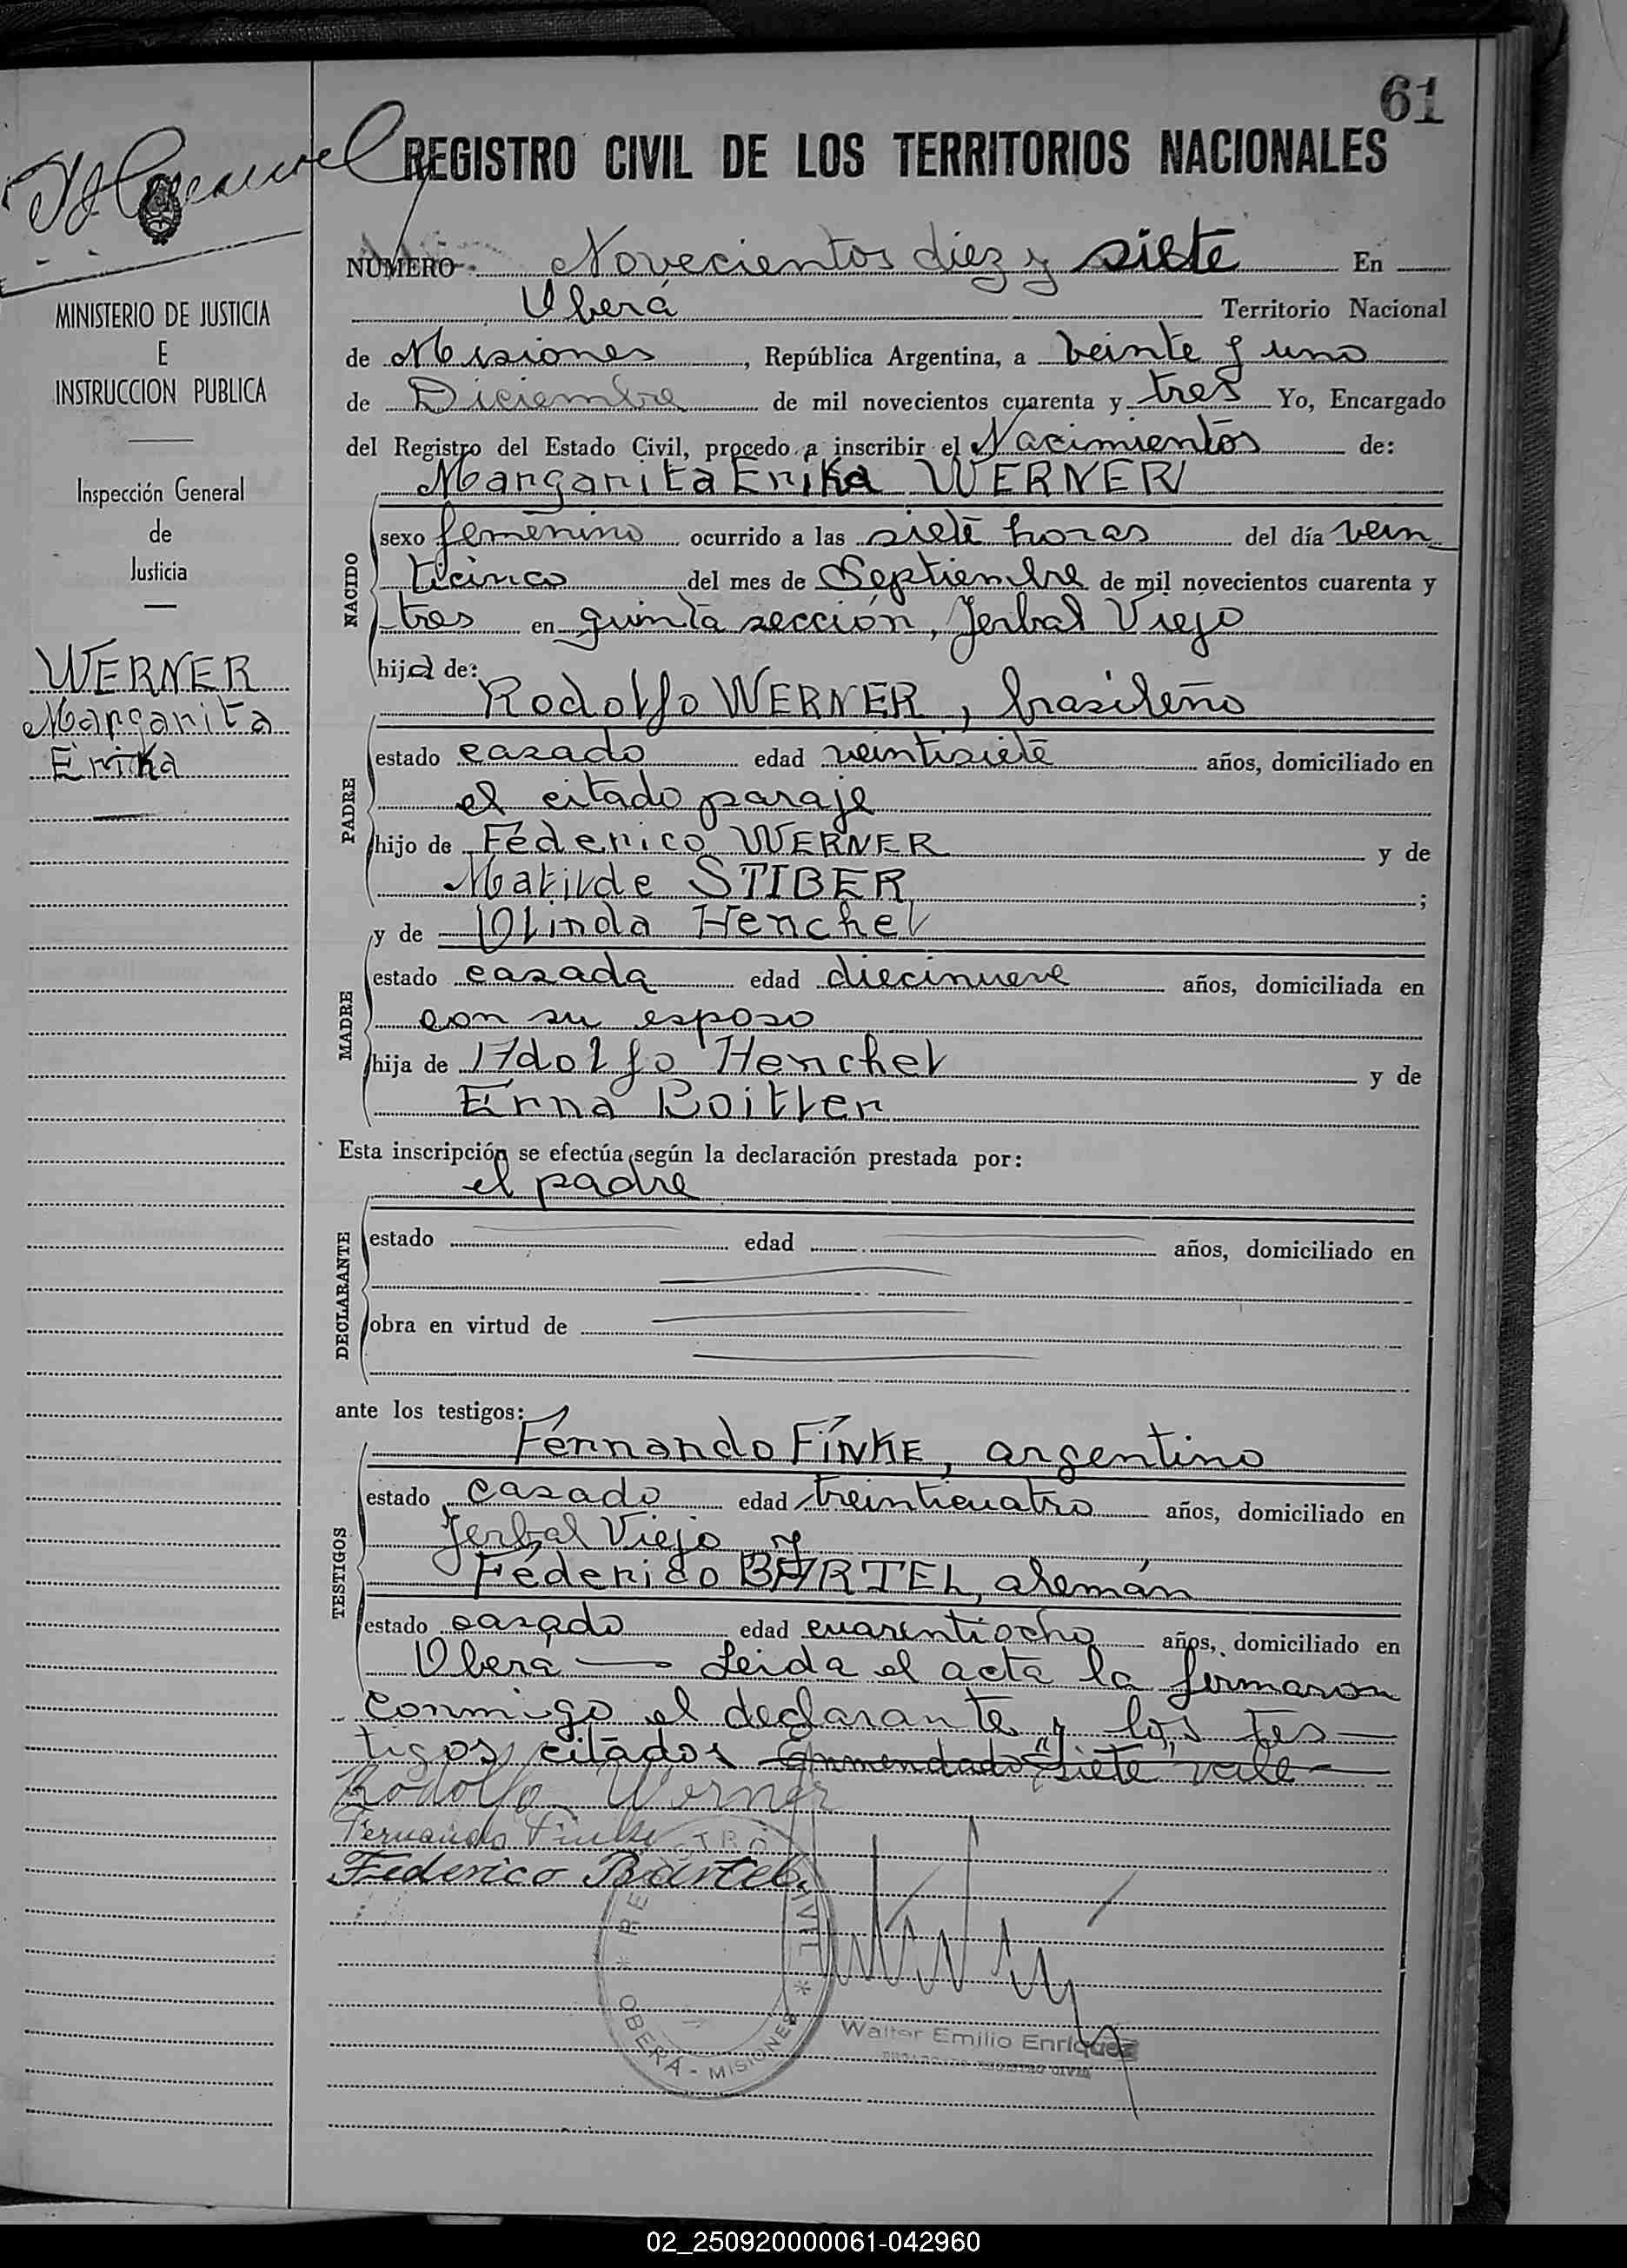 61
REGISTRO CIVIL DE LOS TERRITORIOS NACIONALES
NUMERO Novecientos diez y siete En
Oberá Territorio Nacional
de Misiones, República Argentina, a veinte y uno
de Diciembre de mil novecientos cuarenta y tres Yo, Encargado
del Registro del Estado Civil, procedo a inscribir el Nacimientos de:
Margarita Erika WERNER
NACIDO
sexo femenino ocurrido a las siete horas del día vein
ticinco del mes de Septiembre de mil novecientos cuarenta y
tres en quinta sección, Yerbal Viejo
hija de:
Rodolfo WERNER, brasileño
PADRE
estado casado edad veintisiete años, domiciliado en
el citado paraje
hijo de Federico WERNER y de
Matilde STIBER ;
y de Olinda Henchel
MADRE
estado casada edad diecinueve años, domiciliada en
con su esposo
hija de Adolfo Henchel y de
Erna Roitler
Esta inscripción se efectúa según la declaración prestada por:
el padre
DECLARANTE
estado edad años, domiciliado en
obra en virtud de
ante los testigos:
Fernando FINKE, argentino
TESTIGOS
estado casado edad treinticuatro años, domiciliado en
Yerbal Viejo y
Federico BARTEL, alemán
estado casado edad cuarentiocho años, domiciliado en
Oberá — Leida el acta la firmaron
conmigo el declarante y los tes—
tigos citados Enmendado "siete" vale—
Rodolfo Werner
Fernando Finke
Federico Bartel
REGISTRO CIVIL * OBERÁ - MISIONES *
Walter Emilio Enriquez
MINISTERIO DE JUSTICIA
E
INSTRUCCION PUBLICA
Inspección General
de
Justicia
WERNER
Margarita
Erika
02_250920000061-042960